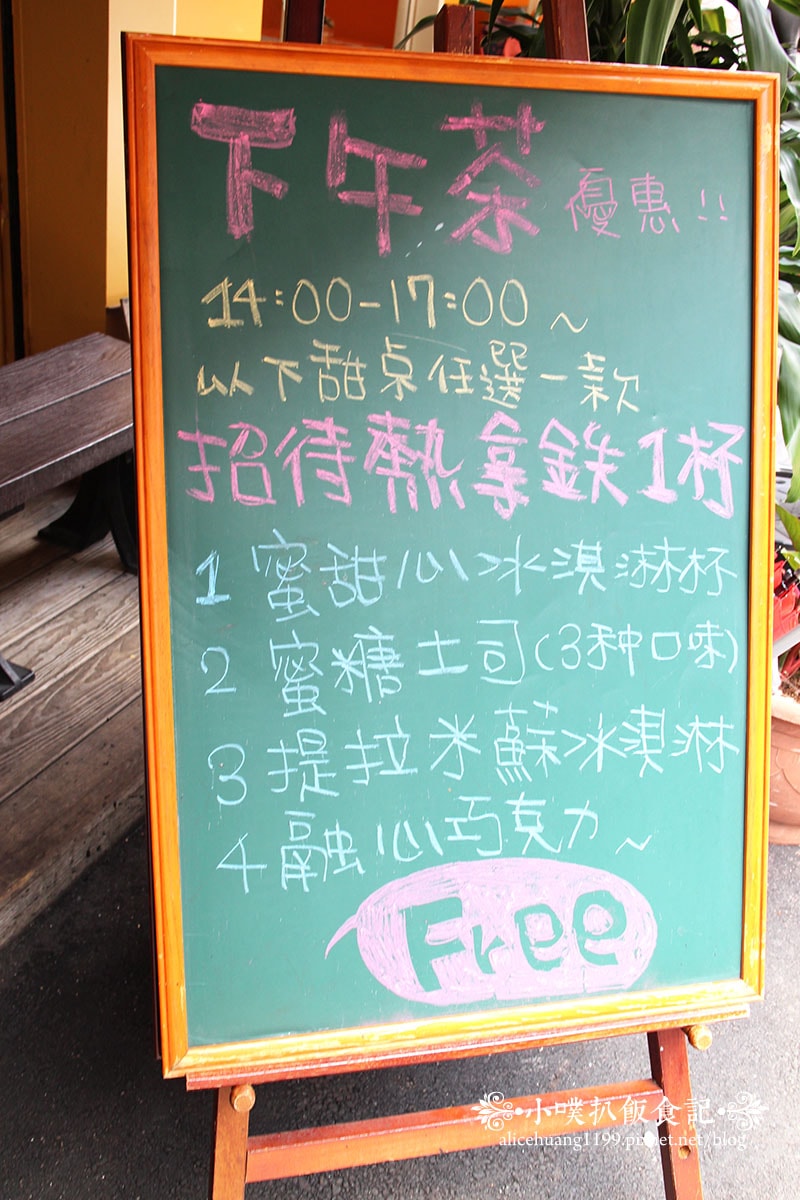 下午茶 優惠!!
14:00-17:00~
以下甜桌任選一款
招待熱拿鉄1杯
1 蜜甜心冰淇淋杯
2 蜜糖土司(3种口味)
3 提拉米蘇冰淇淋
4 融心巧克力~
Free
小噗扒飯食記
alicehuang1199.pixnet.net/blog